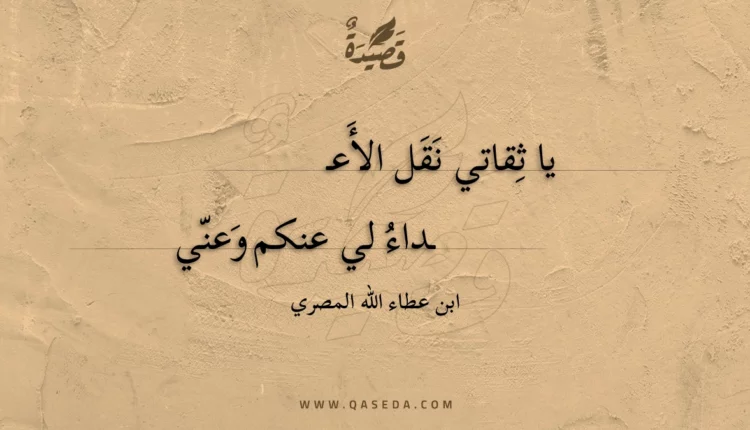 قَصِيْدَةٌ
يا ثِقاتي نَقَل الأَعـ
ـداءُ لي عنكم وَعنّي
ابن عطاء الله المصري
WWW.QASEDA.COM